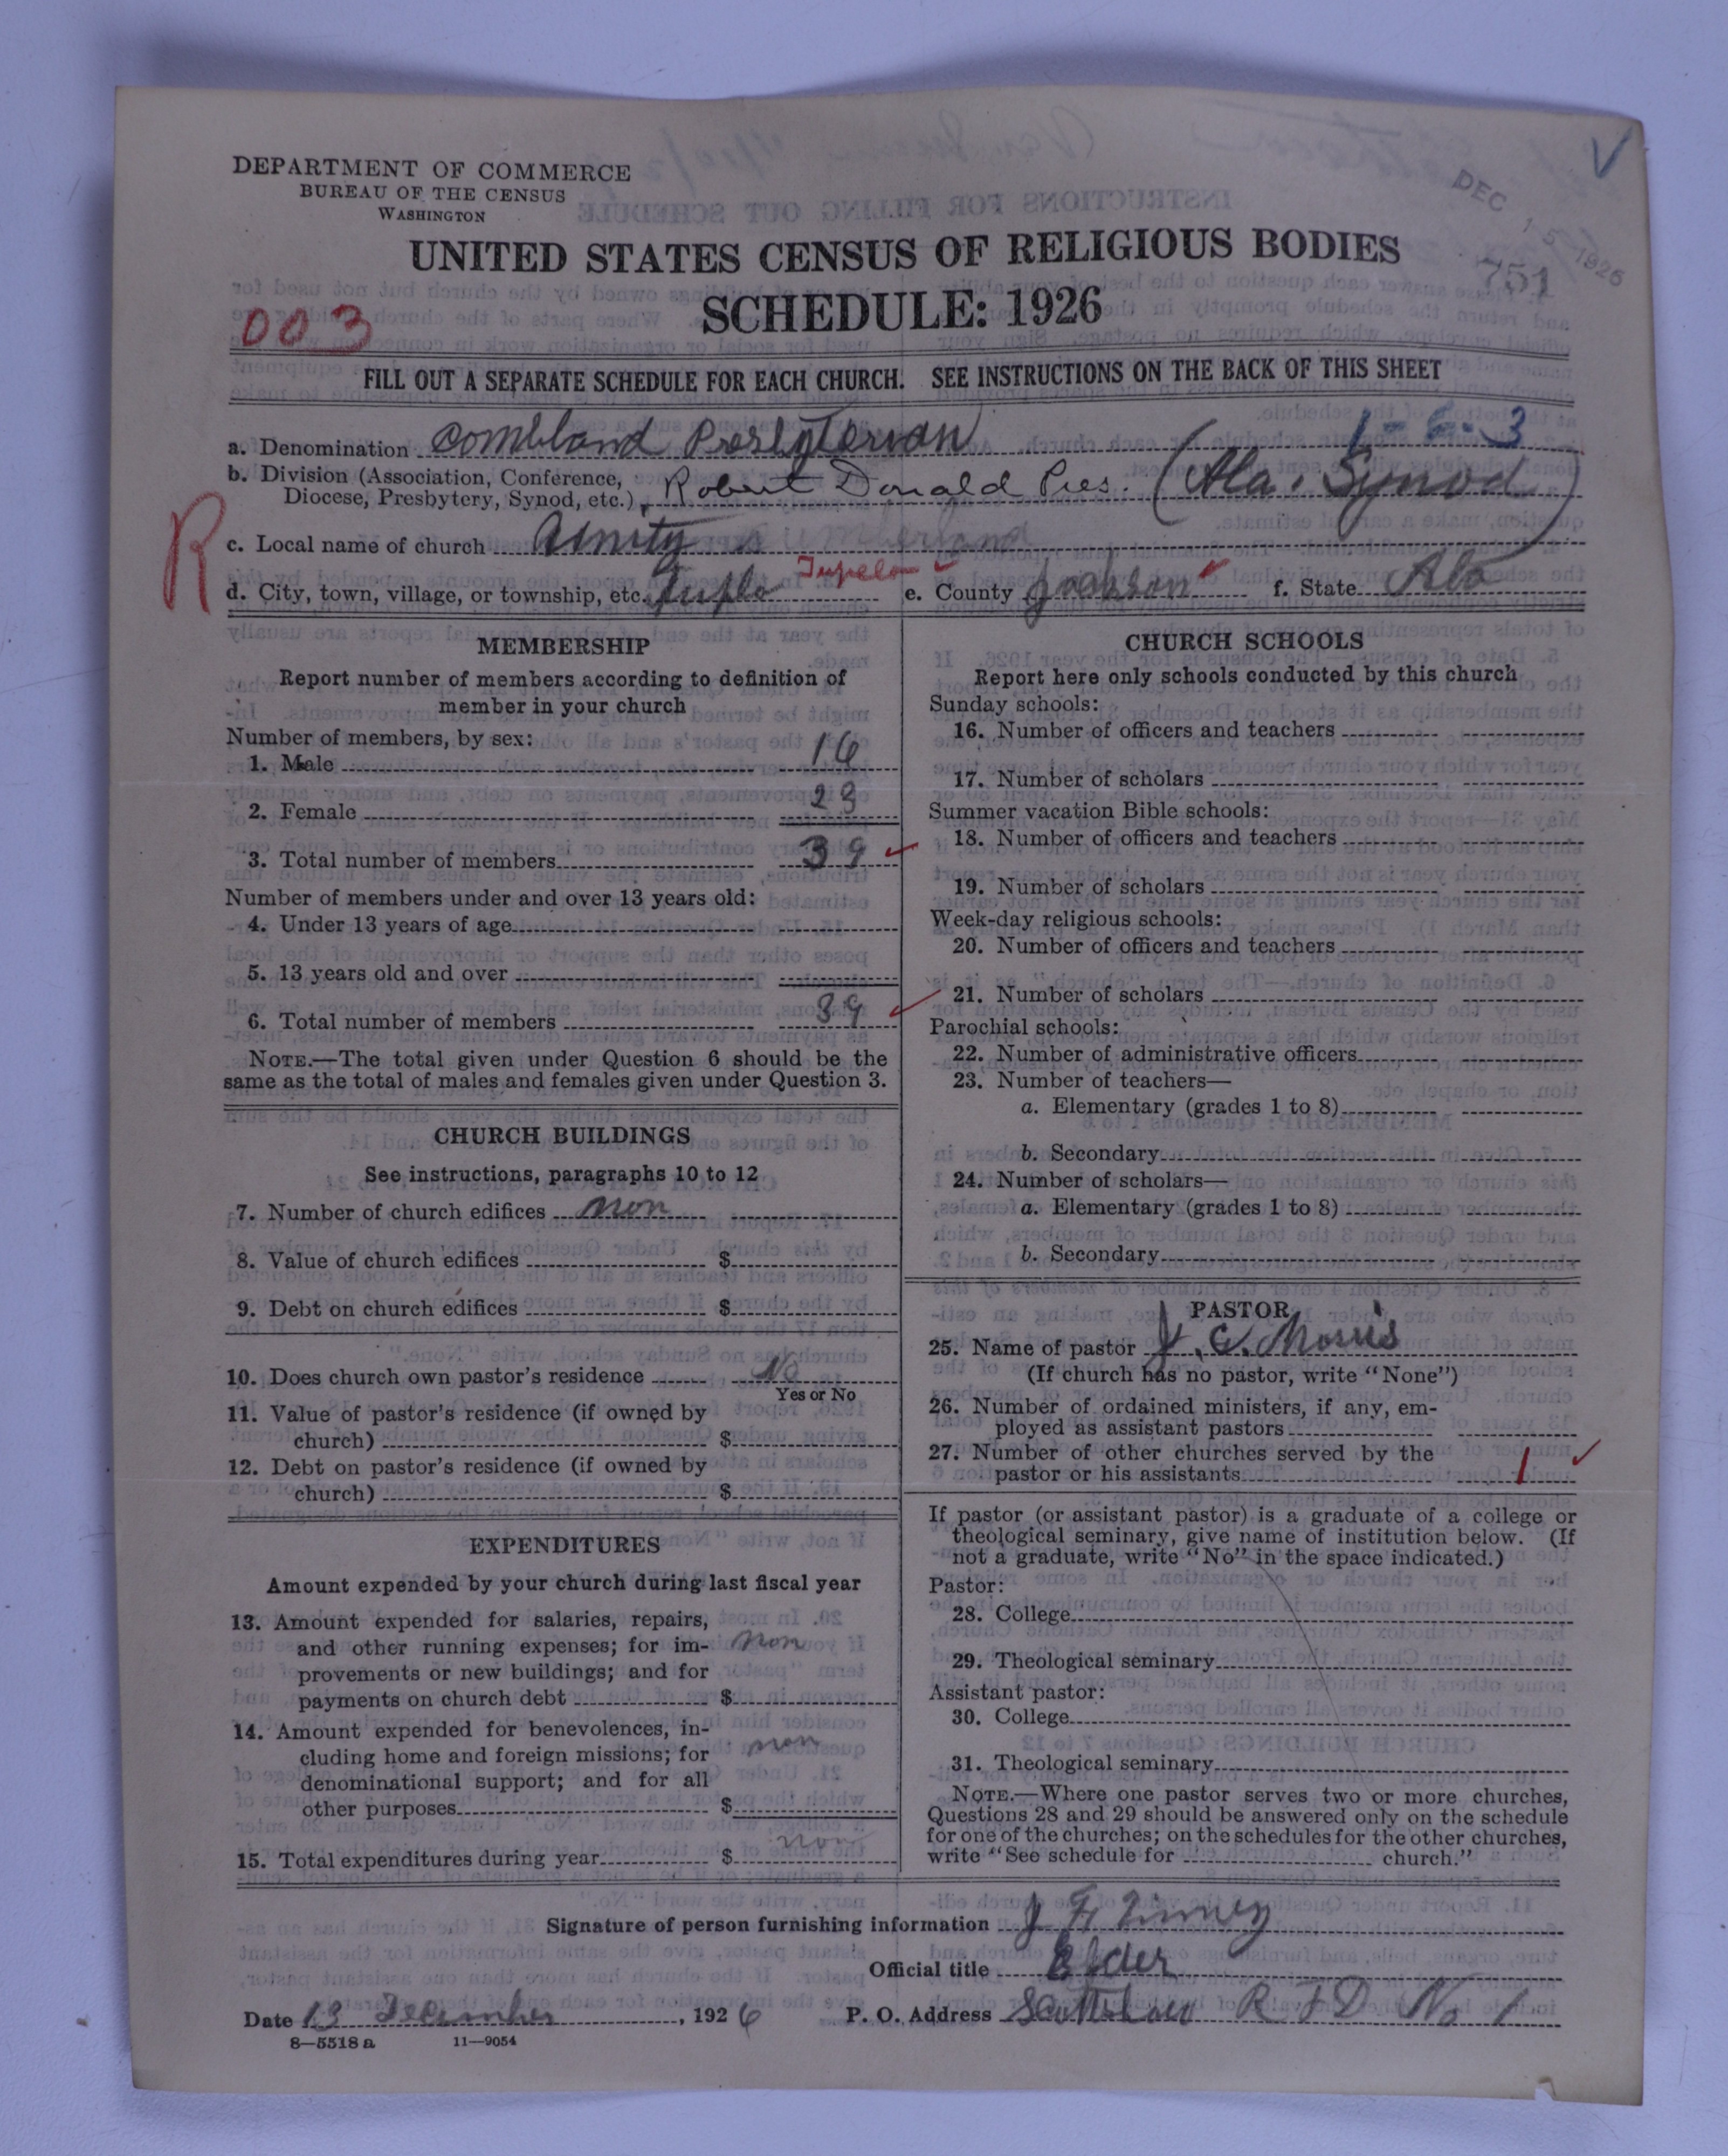 DEPARTMENT OF COMMERCE
BUREAU OF THE CENSUS
WASHINGTON
DEC 15 1926
751
UNITED STATES CENSUS OF RELIGIOUS BODIES
SCHEDULE: 1926
003
FILL OUT A SEPARATE SCHEDULE FOR EACH CHURCH. SEE INSTRUCTIONS ON THE BACK OF THIS SHEET
1-6-3
a. Denomination Combland Presbyterian
b. Division (Association, Conference,
Diocese, Presbytery, Synod, etc.) Robert Donald Pres. (Ala. Synod)
R
c. Local name of church Amity Cumberland
Tupelo
d. City, town, village, or township, etc. Tuplo e. County Jackson f. State Ala
MEMBERSHIP
Report number of members according to definition of
member in your church
Number of members, by sex:
1. Male 16
2. Female 23
3. Total number of members 39
Number of members under and over 13 years old:
4. Under 13 years of age
5. 13 years old and over
6. Total number of members 39
NOTE.—The total given under Question 6 should be the
same as the total of males and females given under Question 3.
CHURCH BUILDINGS
See instructions, paragraphs 10 to 12
7. Number of church edifices non
8. Value of church edifices $
9. Debt on church edifices $
10. Does church own pastor's residence No
Yes or No
11. Value of pastor's residence (if owned by
church) $
12. Debt on pastor's residence (if owned by
church) $
EXPENDITURES
Amount expended by your church during last fiscal year
13. Amount expended for salaries, repairs,
and other running expenses; for im- non
provements or new buildings; and for
payments on church debt $
14. Amount expended for benevolences, in-
cluding home and foreign missions; for non
denominational support; and for all
other purposes $
non
15. Total expenditures during year $
CHURCH SCHOOLS
Report here only schools conducted by this church
Sunday schools:
16. Number of officers and teachers
17. Number of scholars
Summer vacation Bible schools:
18. Number of officers and teachers
19. Number of scholars
Week-day religious schools:
20. Number of officers and teachers
21. Number of scholars
Parochial schools:
22. Number of administrative officers
23. Number of teachers—
a. Elementary (grades 1 to 8)
b. Secondary
24. Number of scholars—
a. Elementary (grades 1 to 8)
b. Secondary
PASTOR
25. Name of pastor J. C. Morris
(If church has no pastor, write "None")
26. Number of ordained ministers, if any, em-
ployed as assistant pastors
27. Number of other churches served by the
pastor or his assistants 1
If pastor (or assistant pastor) is a graduate of a college or
theological seminary, give name of institution below. (If
not a graduate, write "No" in the space indicated.)
Pastor:
28. College
29. Theological seminary
Assistant pastor:
30. College
31. Theological seminary
NOTE.—Where one pastor serves two or more churches,
Questions 28 and 29 should be answered only on the schedule
for one of the churches; on the schedules for the other churches,
write "See schedule for church."
Signature of person furnishing information J F
Official title Elder
Date 13 December, 1926 P. O. Address R F D No 1
8—5518 a 11—9054